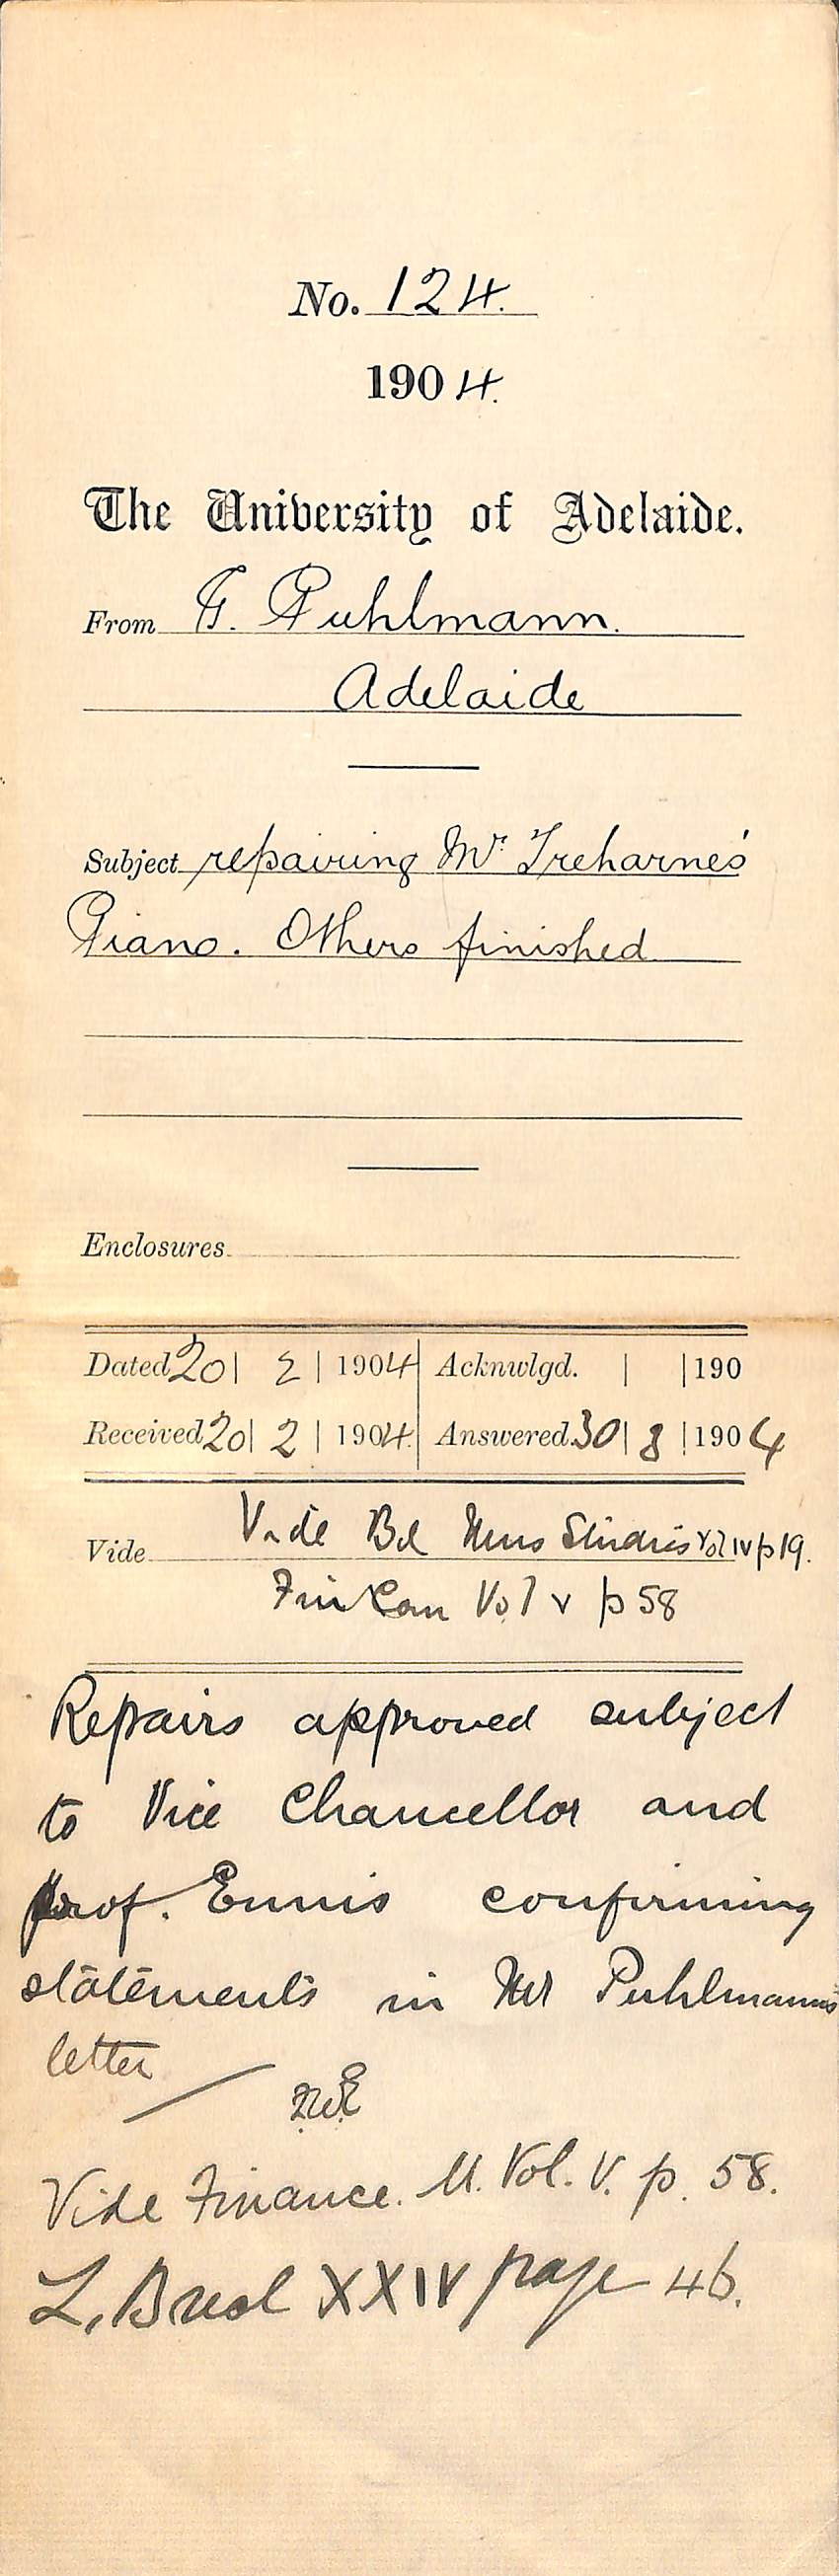 No. 124.
1904.
The University of Adelaide.
From F. Puhlmann.
Adelaide
Subject repairing Mr. Treharne's
Piano. Others finished
Enclosures
Dated 20 | 2 | 1904 Acknwlgd. | | 190
Received 20 | 2 | 1904. Answered 30 | 8 | 1904
Vide Vide Bd Mus Studies Vol IV p 19.
Fin Com Vol V p 58
Repairs approved subject
to Vice Chancellor and
prof. Ennis confirming
statements in Mr Puhlmanns
letter
Vide Finance. M. Vol. V. p. 58.
L. Book XXIV page 46.